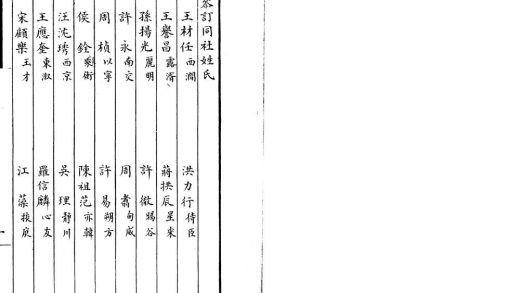 參訂同社姓氏
王材任西澗　洪力行待臣
王譽昌露湑　蔣拱辰星來
孫揚光麗明　許徹暘谷
許永南交　周肅句咸
周楨以寧　許易朔方
侯銓秉衡　陳祖范亦韓
汪沈琇西京　吳理靜川
王應奎東漵　羅信麟心友
宋顧樂玉才　江藻掞庭